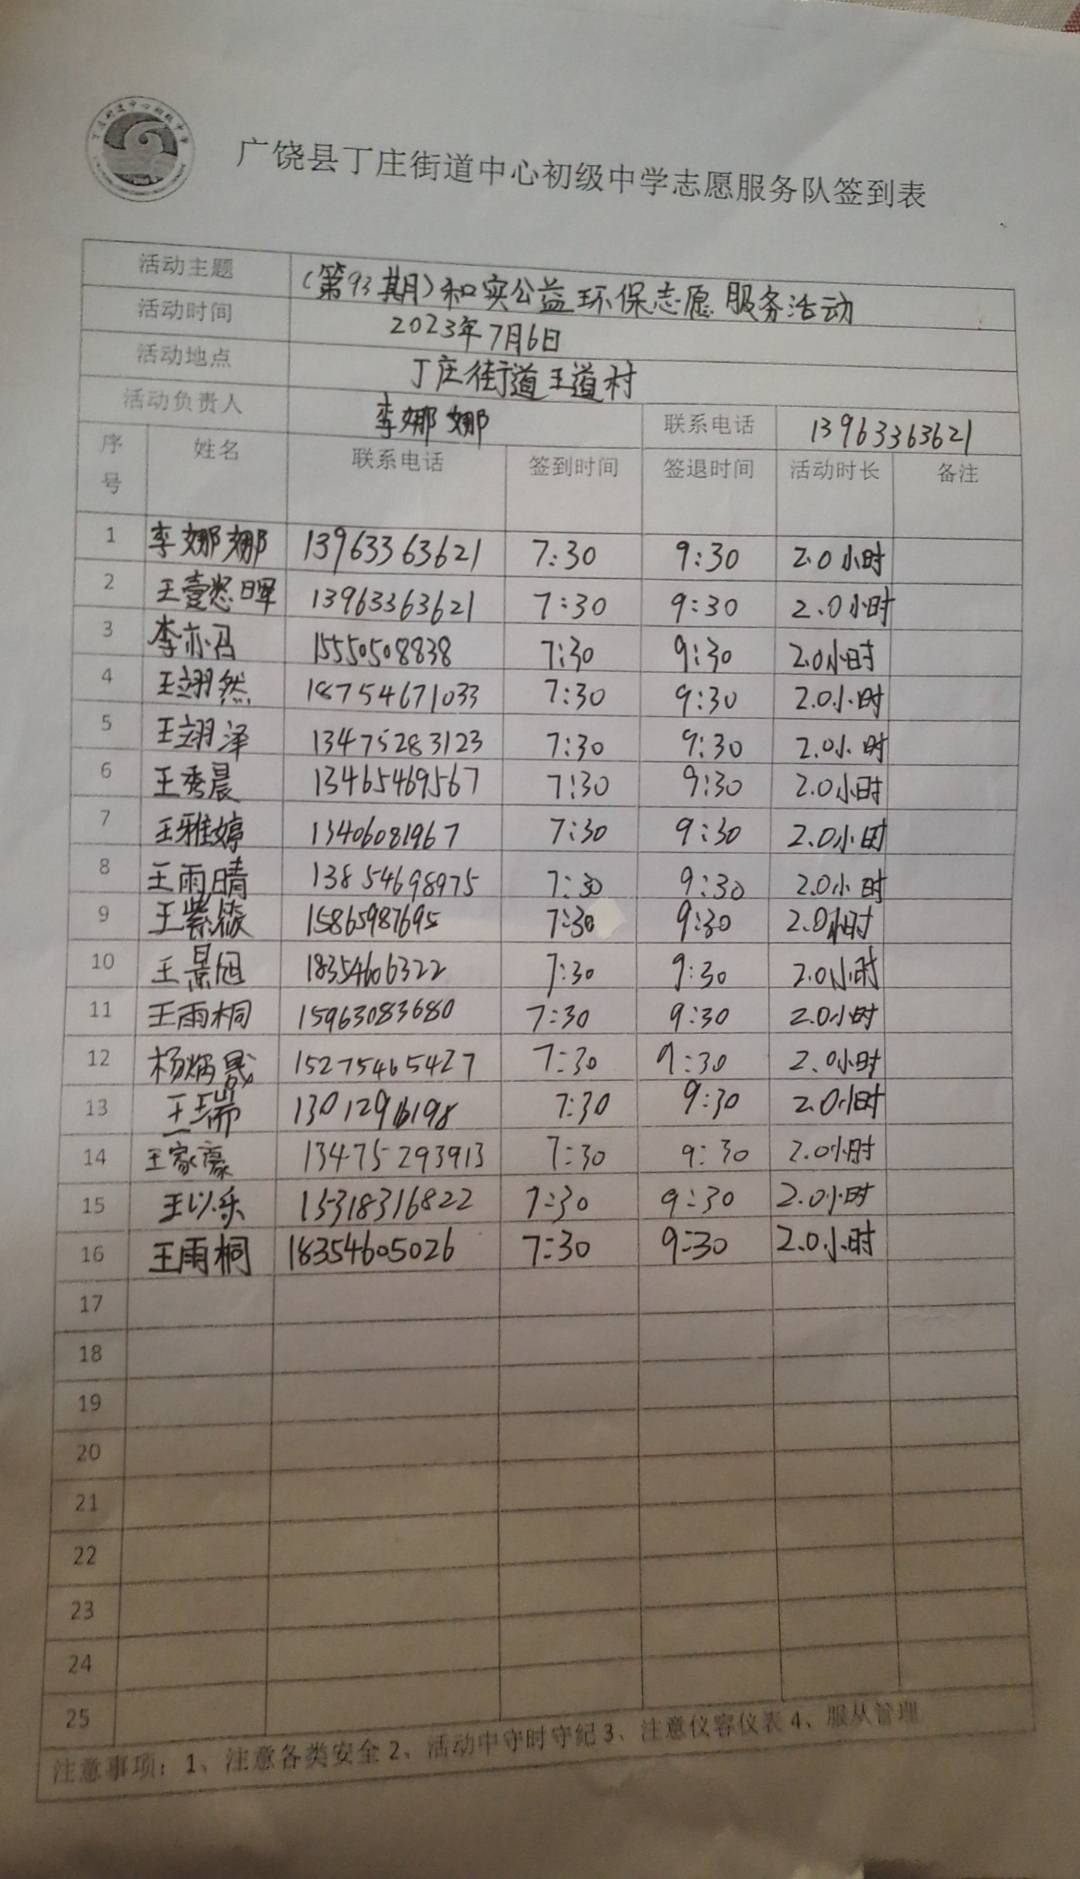 丁庄街道中心初级中学
广饶县丁庄街道中心初级中学志愿服务队签到表
活动主题 (第93期)和实公益环保志愿服务活动
活动时间 2023年7月6日
活动地点 丁庄街道王道村
活动负责人 李娜娜 联系电话 13963363621
序号 姓名 联系电话 签到时间 签退时间 活动时长 备注
1 李娜娜 13963363621 7:30 9:30 2.0小时
2 王壹悠晖 13963363621 7:30 9:30 2.0小时
3 李亦 15550508838 7:30 9:30 2.0小时
4 王翊然 18754671033 7:30 9:30 2.0小时
5 王翊泽 13475283123 7:30 9:30 2.0小时
6 王秀晨 13465469567 7:30 9:30 2.0小时
7 王雅婷 13406081967 7:30 9:30 2.0小时
8 王雨晴 13854698975 7:30 9:30 2.0小时
9 王紫筱 15865987695 7:30 9:30 2.0小时
10 王景旭 18354606322 7:30 9:30 2.0小时
11 王雨桐 15963083680 7:30 9:30 2.0小时
12 杨炳晟 15275465427 7:30 9:30 2.0小时
13 王瑞 7:30 9:30 2.0小时
14 王家豪 13475293913 7:30 9:30 2.0小时
15 王以乐 15318316822 7:30 9:30 2.0小时
16 王雨桐 18354605026 7:30 9:30 2.0小时
17
18
19
20
21
22
23
24
25
注意事项：1、注意各类安全 2、活动中守时守纪 3、注意仪容仪表 4、服从管理